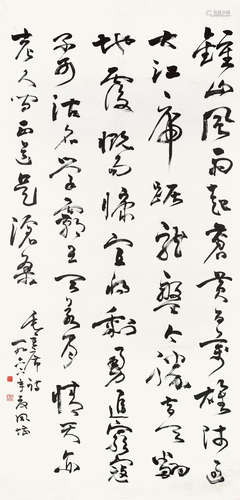 鍾山風雨起蒼黃百萬雄師過
大江虎踞龍盤今勝昔天翻
地覆慨而慷宜將剩勇追窮寇
不可沽名學霸王天若有情天亦
老人間正道是滄桑
毛主席詩
一九六年